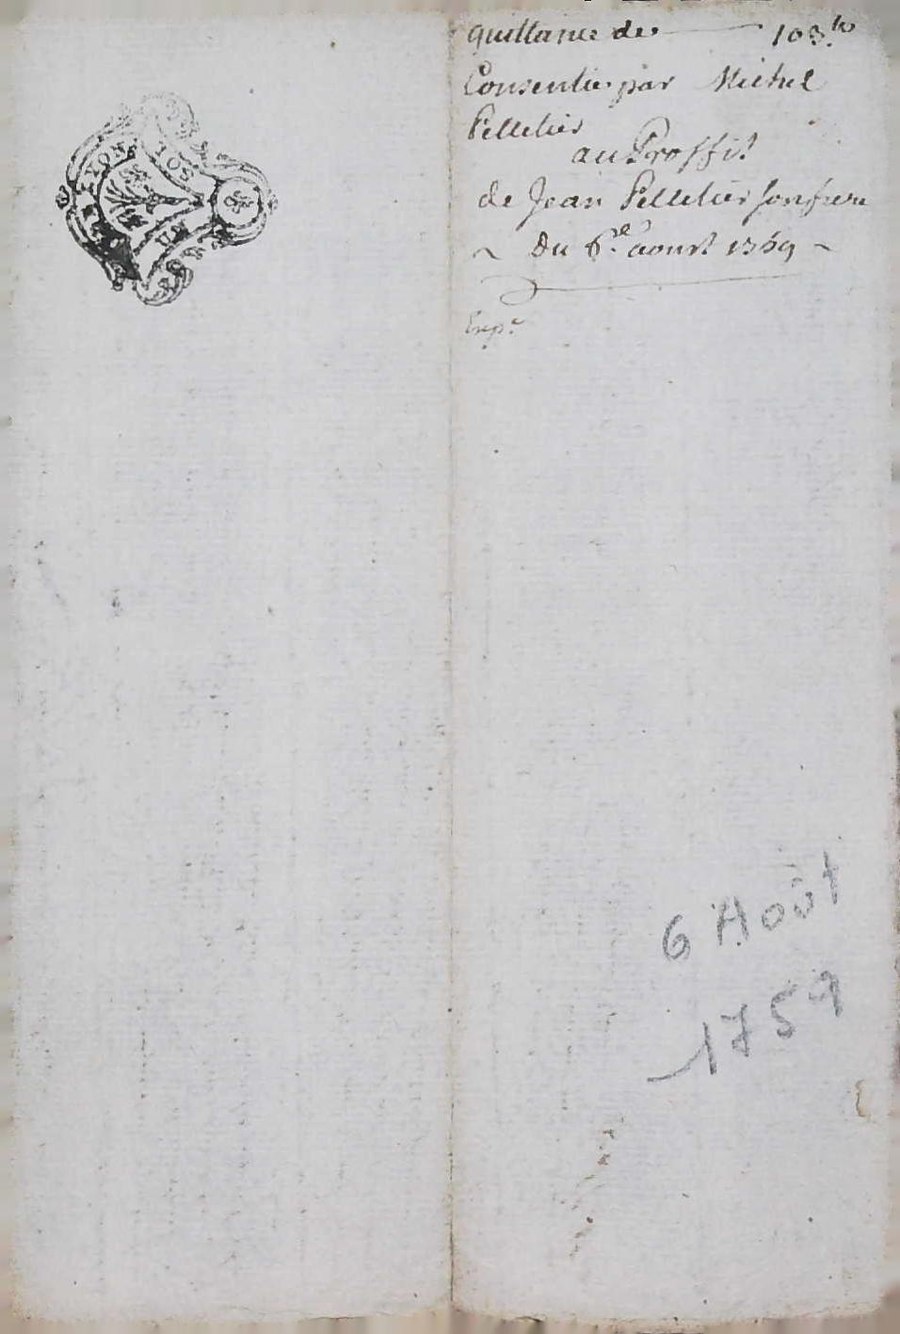 quittance de 103.ᵗᵗ
Consentie par Michel
Pelletier
au Proffit
de Jean Pelletier son frere
~ Du 6.ᵉ aoust 1759 ~
Exp.ᵉ
LYON
SOL
UN
6 Août
1759